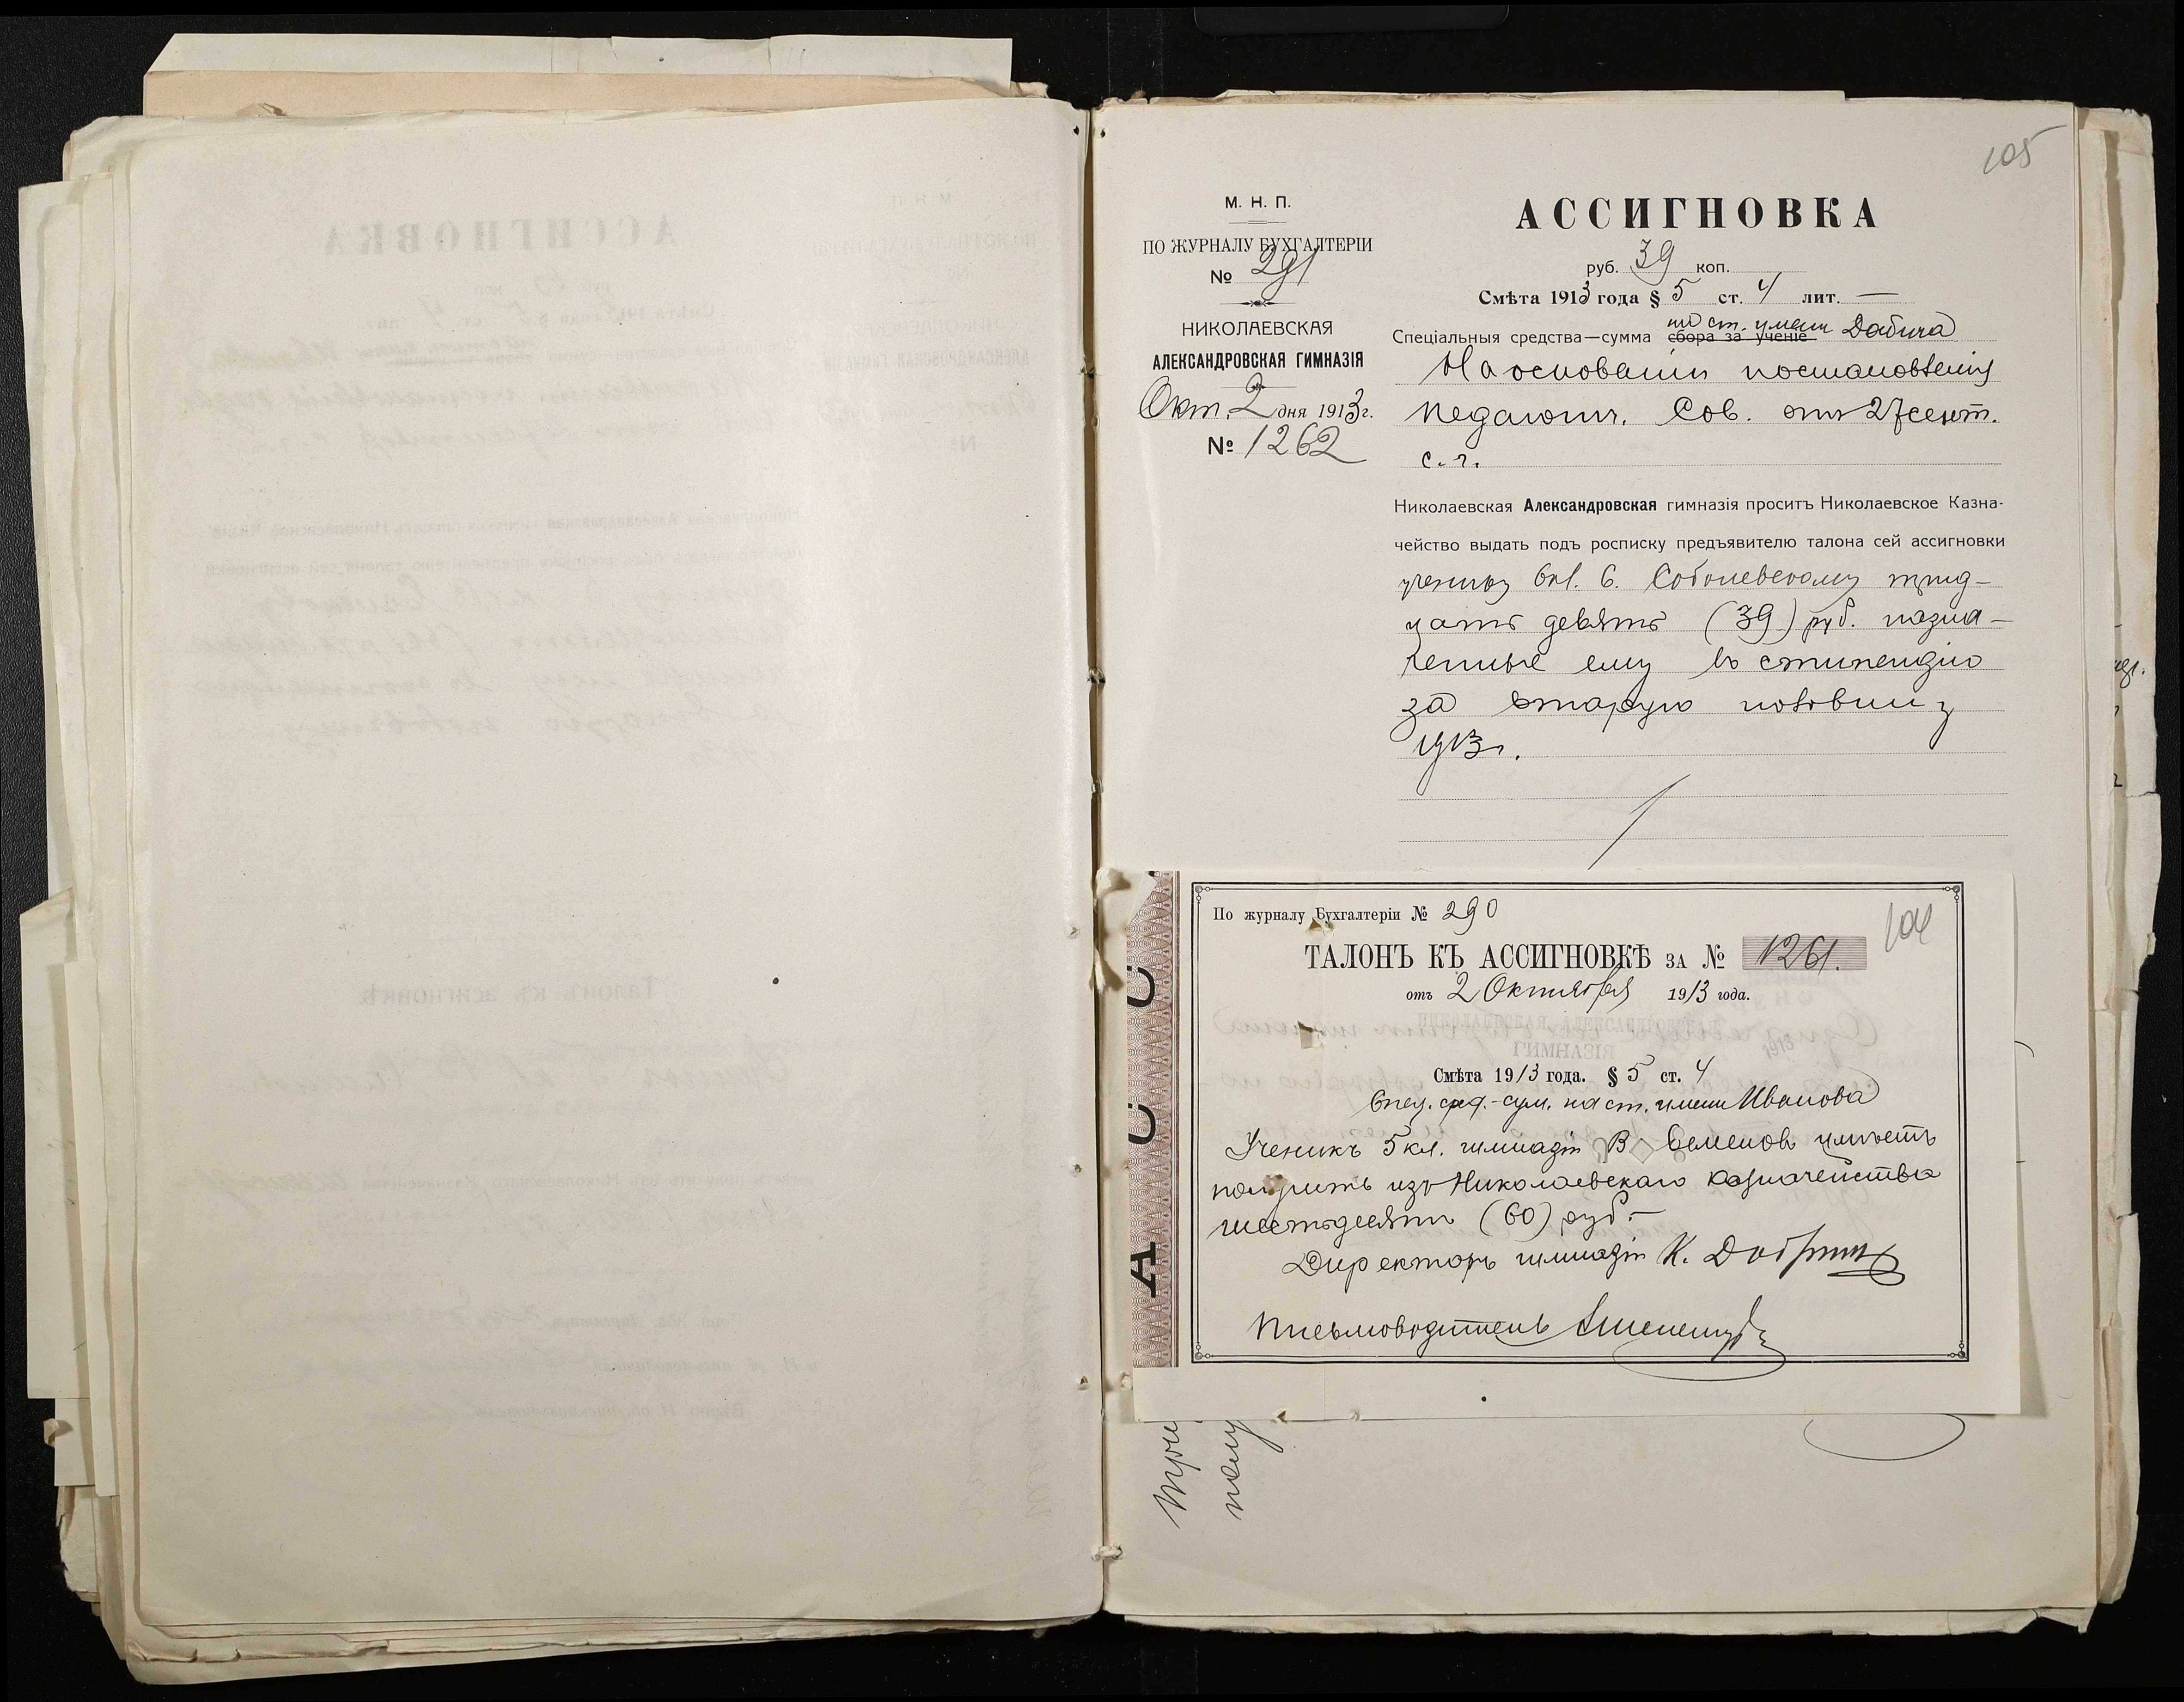 105
М. Н. П.
ПО ЖУРНАЛУ БУХГАЛТЕРІИ
№ 291
НИКОЛАЕВСКАЯ
АЛЕКСАНДРОВСКАЯ ГИМНАЗІЯ
Окт. 2 дня 1913 г.
№ 1262
АССИГНОВКА
руб. 39 коп.
Смѣта 1913 года § 5 ст. 4 лит. —
на ст. имени Дабича
Спеціальныя средства—сумма сбора за ученіе
На основаніи постановленія
педагогич. Сов. отъ 27 сент.
с. г.
Николаевская Александровская гимназія проситъ Николаевское Казна-
чейство выдать подъ росписку предъявителю талона сей ассигновки
ученику 6 кл. С. Соболевскому трид-
цать девять (39) руб. назна-
ченные ему въ стипендію
за вторую половину
1913 г.
По журналу Бухгалтеріи № 290
104
ТАЛОНЪ КЪ АССИГНОВКѢ ЗА № 1261.
отъ 2 Октября 1913 года.
Смѣта 1913 года. § 5 ст. 4
Спец. сред.-сум. на ст. имени Иванова
Ученикъ 5 кл. гимназіи В Семеновъ имѣетъ
получить изъ Николаевскаго казначейства
шестьдесятъ (60) руб.—
Директоръ гимназіи К. Добрин
Письмоводитель
АССИ
три
полу